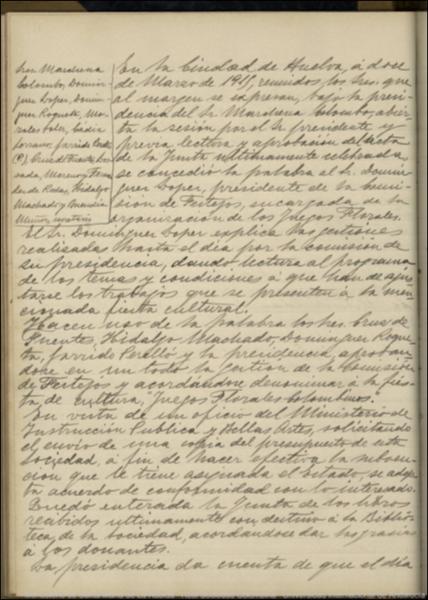 Sres. Marchena
Colombo, Domín-
guez López, Domín-
guez Roqueta, Mo-
rales
Soriano, Garrido Perelló
(P.), Cruz de Fuentes,
Moreno y
dez de Hidalgo
Machado y
Muñoz,
En la Ciudad de Huelva, á doce
de Marzo de 1911, reunidos los Sres. que
al margen se expresan, bajo la presi-
dencia del Sr. Marchena Colombo, abier-
ta la sesión por el Sr. presidente y
previa lectura y aprobación del acta
de la Junta ultimamente celebrada,
se concedió la palabra al Sr. Domín-
guez López, presidente de la Comi-
sión de Festejos, encargada de la
organización de los Juegos Florales.
El Sr. Domínguez López explica las gestiones
realizadas hasta el día por la comisión de
su presidencia, dando lectura al programa
de los temas y condiciones á que han de ajus-
tarse los trabajos que se presenten á la men-
cionada fiesta cultural.
Hacen uso de la palabra los Sres. Cruz de
Fuentes, Hidalgo Machado, Domínguez Roque-
ta, Garrido Perelló y la presidencia, aproban-
dose en un todo la gestión de la Comisión
de Festejos y acordandose denominar á la fies-
ta de cultura, "Juegos Florales Colombinos".
En vista de un oficio del Ministerio de
Instrucción Publica y Bellas Artes, solicitando
el envio de una copia del presupuesto de esta
Sociedad, á fin de hacer efectiva la subven-
cion que le tiene asignada el Estado, se adop-
ta acuerdo de conformidad con lo interesado.
Quedó enterada la Junta de los libros
recibidos ultimamente con destino á la Biblio-
teca de la Sociedad, acordandose dar las gracias
á los donantes.
La presidencia da cuenta de que el día